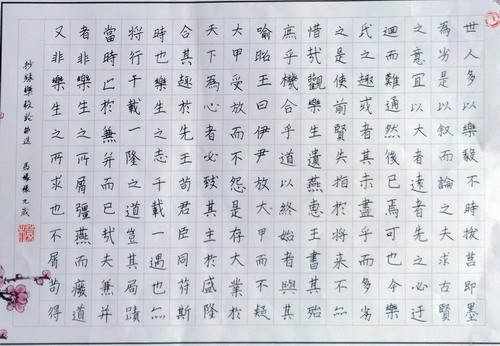 世人多以樂毅不時拔莒即墨
為劣是以叙而論之夫求古賢
之意宜以大者遠者先之必迂
迴而難通然後已焉可也今樂
氏之趣或者其未盡乎而多劣
之是使前賢失指於將來不亦
惜哉觀樂生遺燕惠王書其殆
庶乎機合乎道以終始者與其
喻昭王曰伊尹放大甲而不疑
大甲受放而不怨是存大業於
天下為心者必致其主於盛隆
合其趣於先王苟君臣同苻斯
時也樂生之志千載一遇也亦
將行千載一隆之道豈其局蹟
當時止於兼并而已哉夫兼并
者非樂生之所屑彊燕而廢道
又非樂生之所求也不屑苟得
抄錄樂毅論節選 九歲